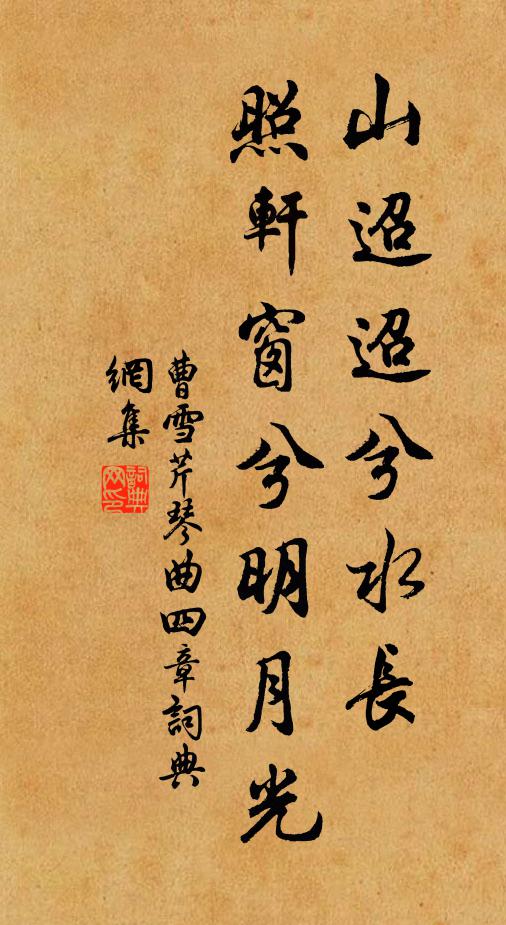 山迢迢兮水長
照軒窗兮明月光
曹雪芹琴曲四章詞典
網集
詞典
網印